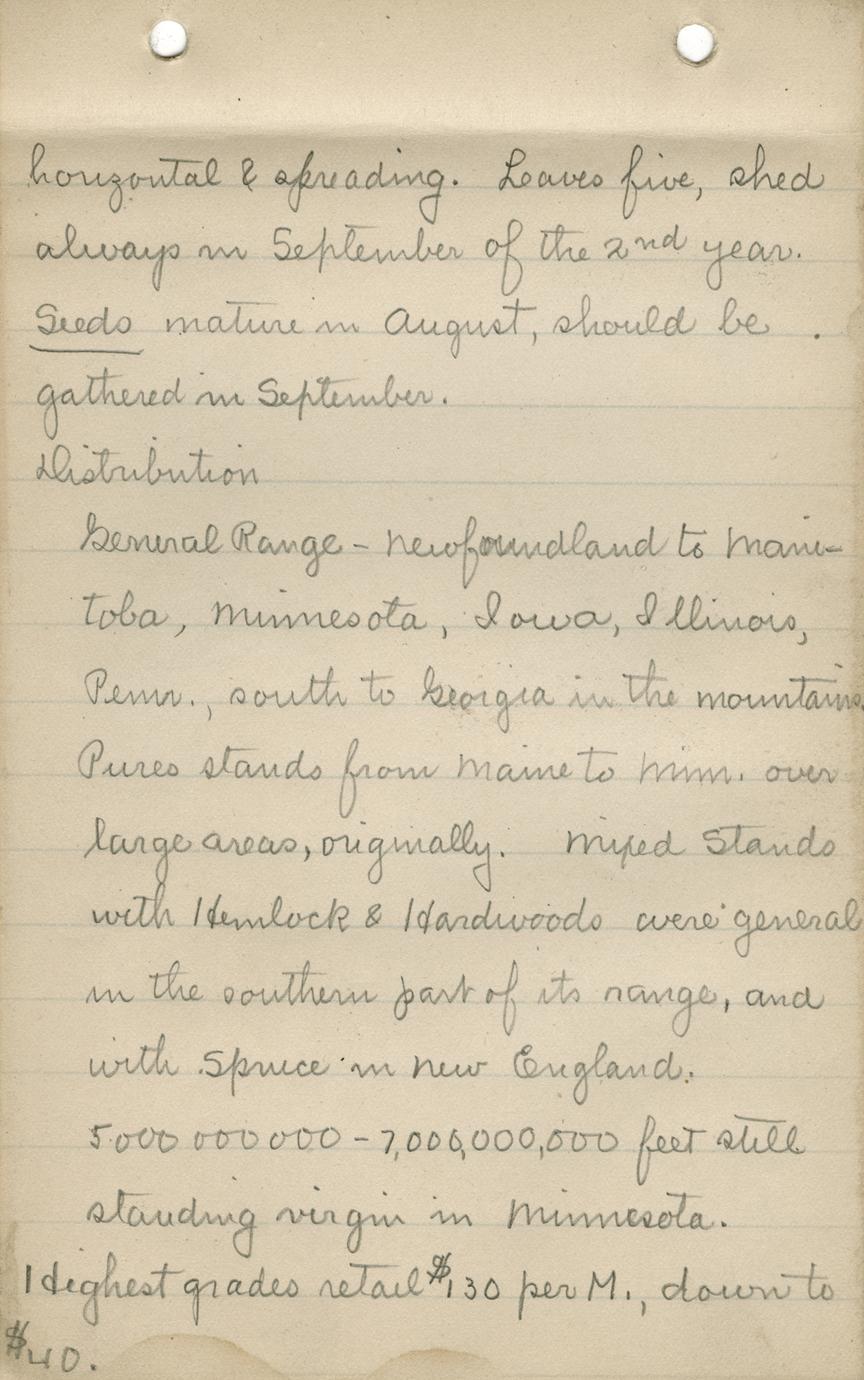 horizontal & spreading. Leaves five, shed
always in September of the 2nd year.
Seeds mature in August, should be .
gathered in September.
Distribution
General Range - Newfoundland to Mani-
toba, Minnesota, Iowa, Illinois,
Penn., south to Georgia in the mountains.
Pures stands from Maine to Minn. over
large areas, originally. Mixed Stands
with Hemlock & Hardwoods were general
in the southern part of its range, and
with Spruce in New England.
5000 000 000 - 7,000,000,000 feet still
standing virgin in Minnesota.
Highest grades retail $130 per M., down to
$40.